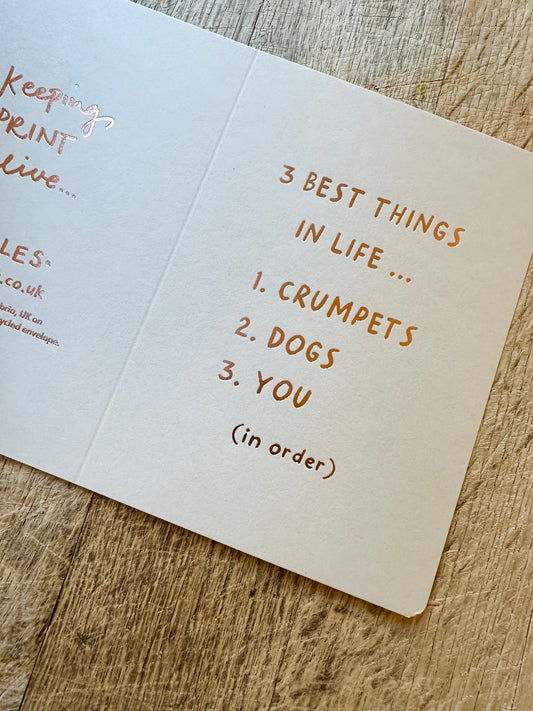 Keeping
PRINT
live...
LES-
.co.uk
bria, UK on
ycled envelope.
3 BEST THINGS
IN LIFE ...
1. CRUMPETS
2. DOGS
3. YOU
(in order)